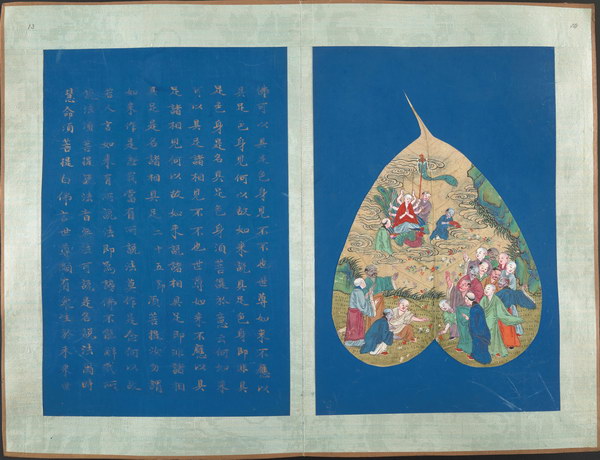 佛可以具足色身見不不也世尊如來不應以
具足色身見何以故如來說具足色身即非具
足色身是名具足色身須菩提於意云何如來
可以具足諸相見不不也世尊如來不應以具
足諸相見何以故如來說諸相具足即非諸相
具足是名諸相具足二十五 須菩提汝勿謂
如來作是念我當有所說法莫作是念何以故
若人言如來有所說法即為謗佛不能解我所
說故須菩提說法者無法可說是名說法爾時
慧命須菩提白佛言世尊頗有眾生於未來世